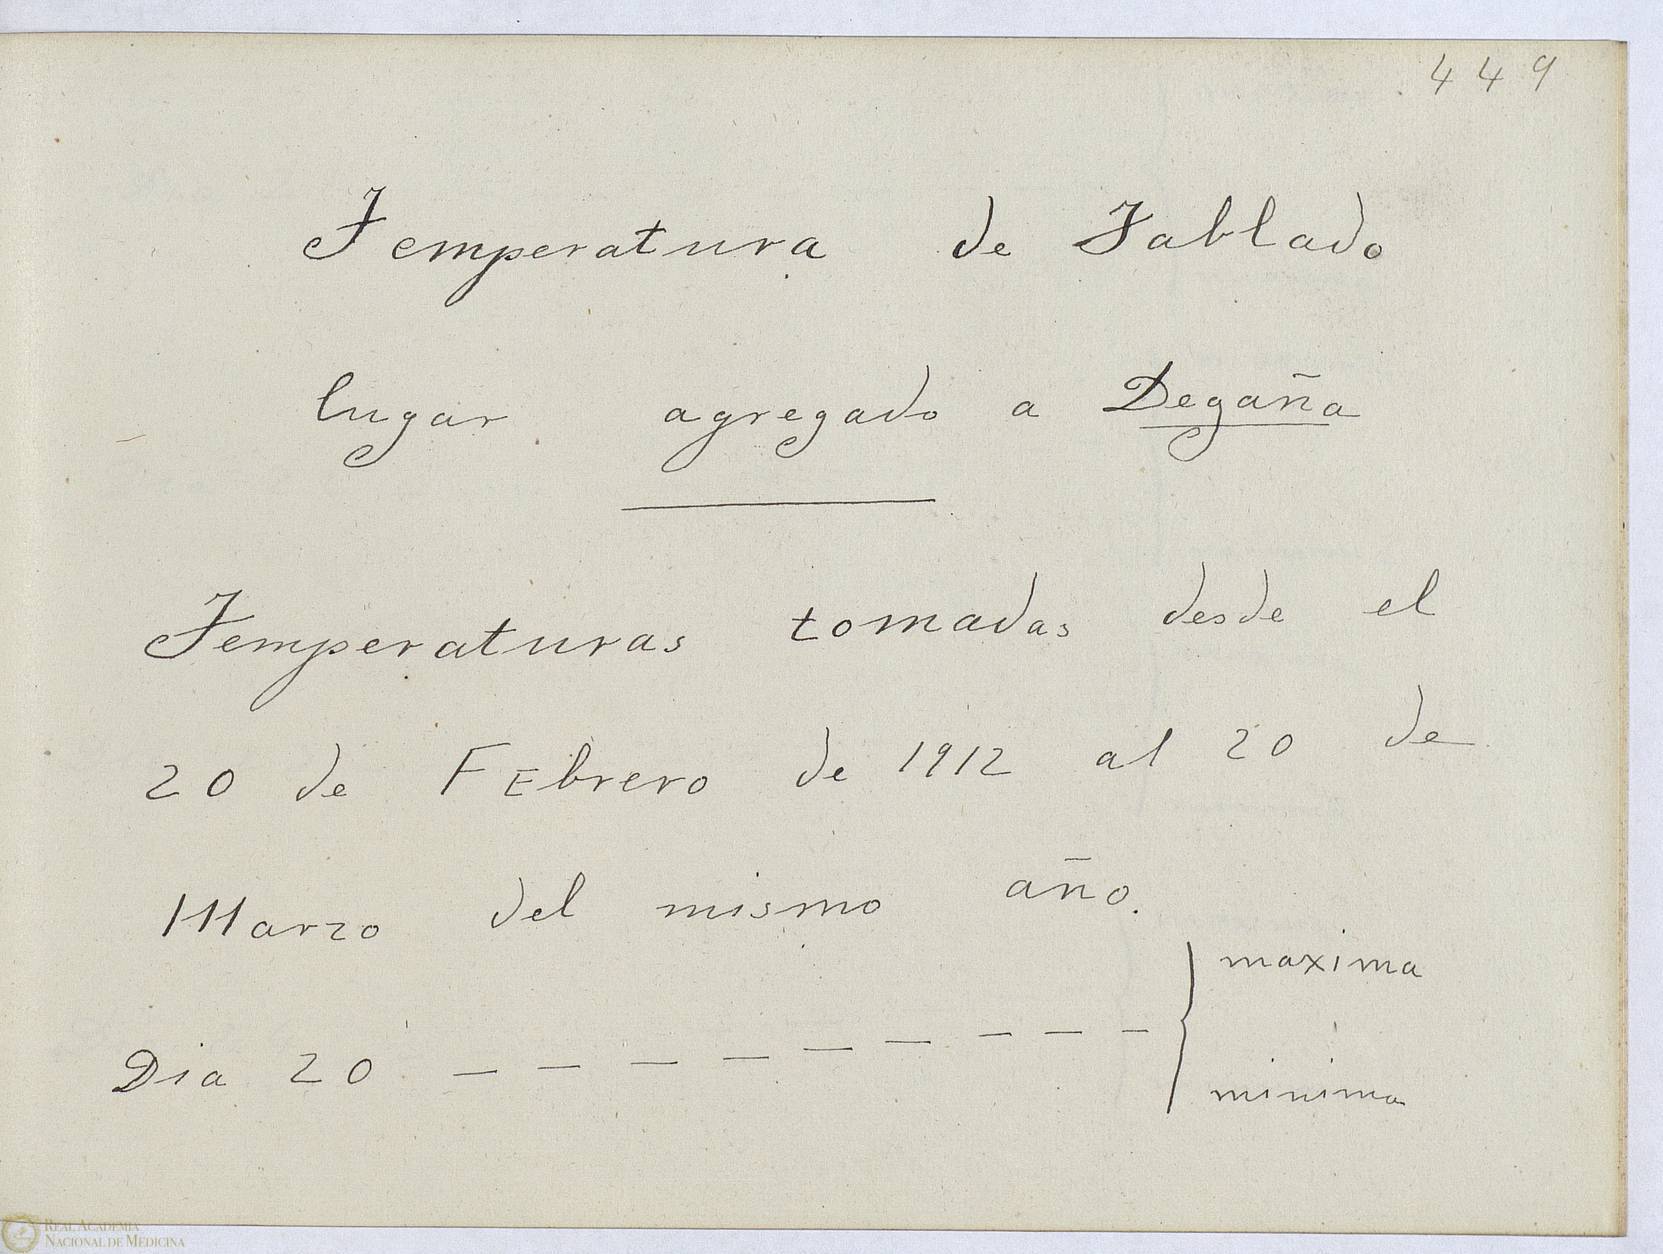 449
Temperatura de Tablado
lugar agregado a Degaña
Temperaturas tomadas desde el
20 de FEbrero de 1912 al 20 de
Marzo del mismo año.
maxima
Dia 20 — — — — — — — — — {
minima
REAL ACADEMIA
NACIONAL DE MEDICINA